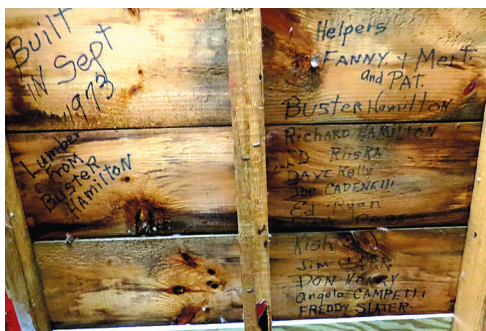 Built
IN Sept
1973
Lumber
From
Buster
HAMILTON
Helpers
FANNY + Mert
and PAT.
Buster Hamilton
Richard HAMILTON
Riiska
DAVE Kelly
Joe CADENElli
Ed Ryan
Kish
Jim CARR
DON HENRY
Angelo CAMPETTi
FREDDY SLATER